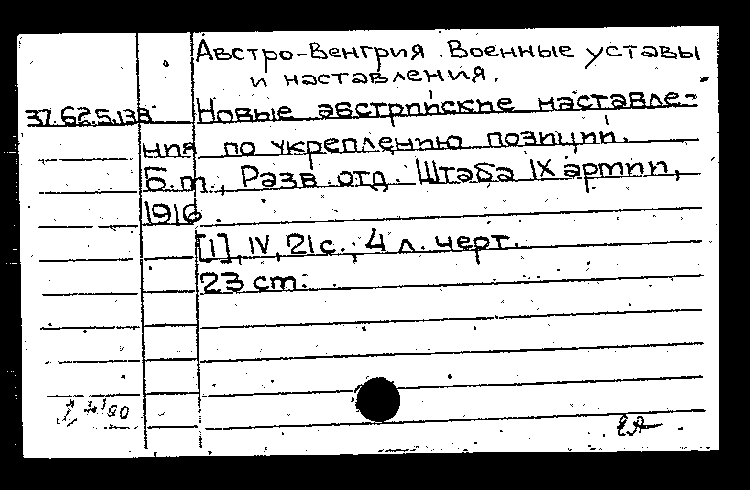 Австро-Венгрия. Военные уставы
и наставления.
37.62.5.138 Новые австрийские наставле-
ния по укреплению позиций.
Б.m., Разв. отд. Штаба IX армии,
1916.
[1], IV, 21 с.; 4 л. черт.
23 cm.